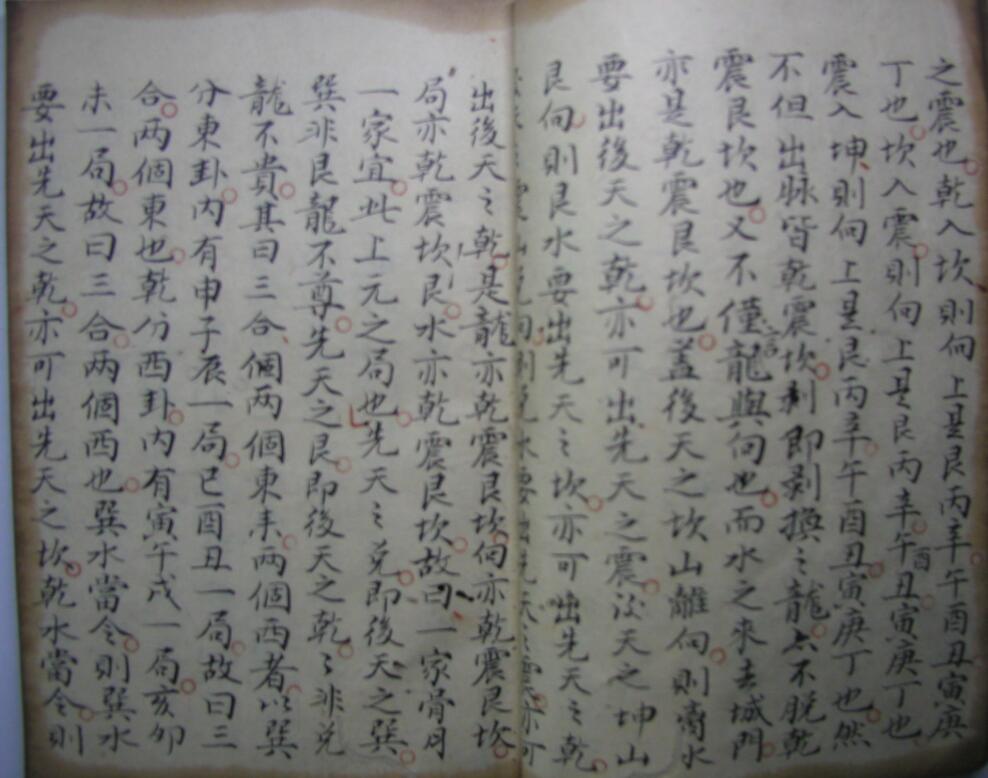 之震也乾入坎則向上是艮丙辛午酉丑寅庚
丁也坎入震則向上是艮丙辛午酉丑寅庚丁也
震入坤則向上是艮丙辛午酉丑寅庚丁也然
不但出脉皆乾震坎剥即剥換之龍亦不脱乾
震艮坎也又不僅言龍與向也而水之来去城門
亦是乾震艮坎也盖後天之坎山離向則离水
要出後天之乾亦可出先天之震後天之坤山
艮向則艮水要出先天之坎亦可出先天之乾
出後天之乾是龍亦乾震艮坎向亦乾震艮坎
局亦乾震坎艮水亦乾震艮坎故曰一家骨月
一家宜此上元之局也先天之兑即後天之巽
巽非艮龍不尊先天之艮即後天之乾乾非兑
龍不貴其曰三合個两個東来两個西者以巽
分東卦内有申子辰一局巳酉丑一局故曰三
合两個東也乾分西卦内有寅午戌一局亥卯
未一局故曰三合两個西也巽水當令則巽水
要出先天之乾亦可出先天之坎乾水當令則